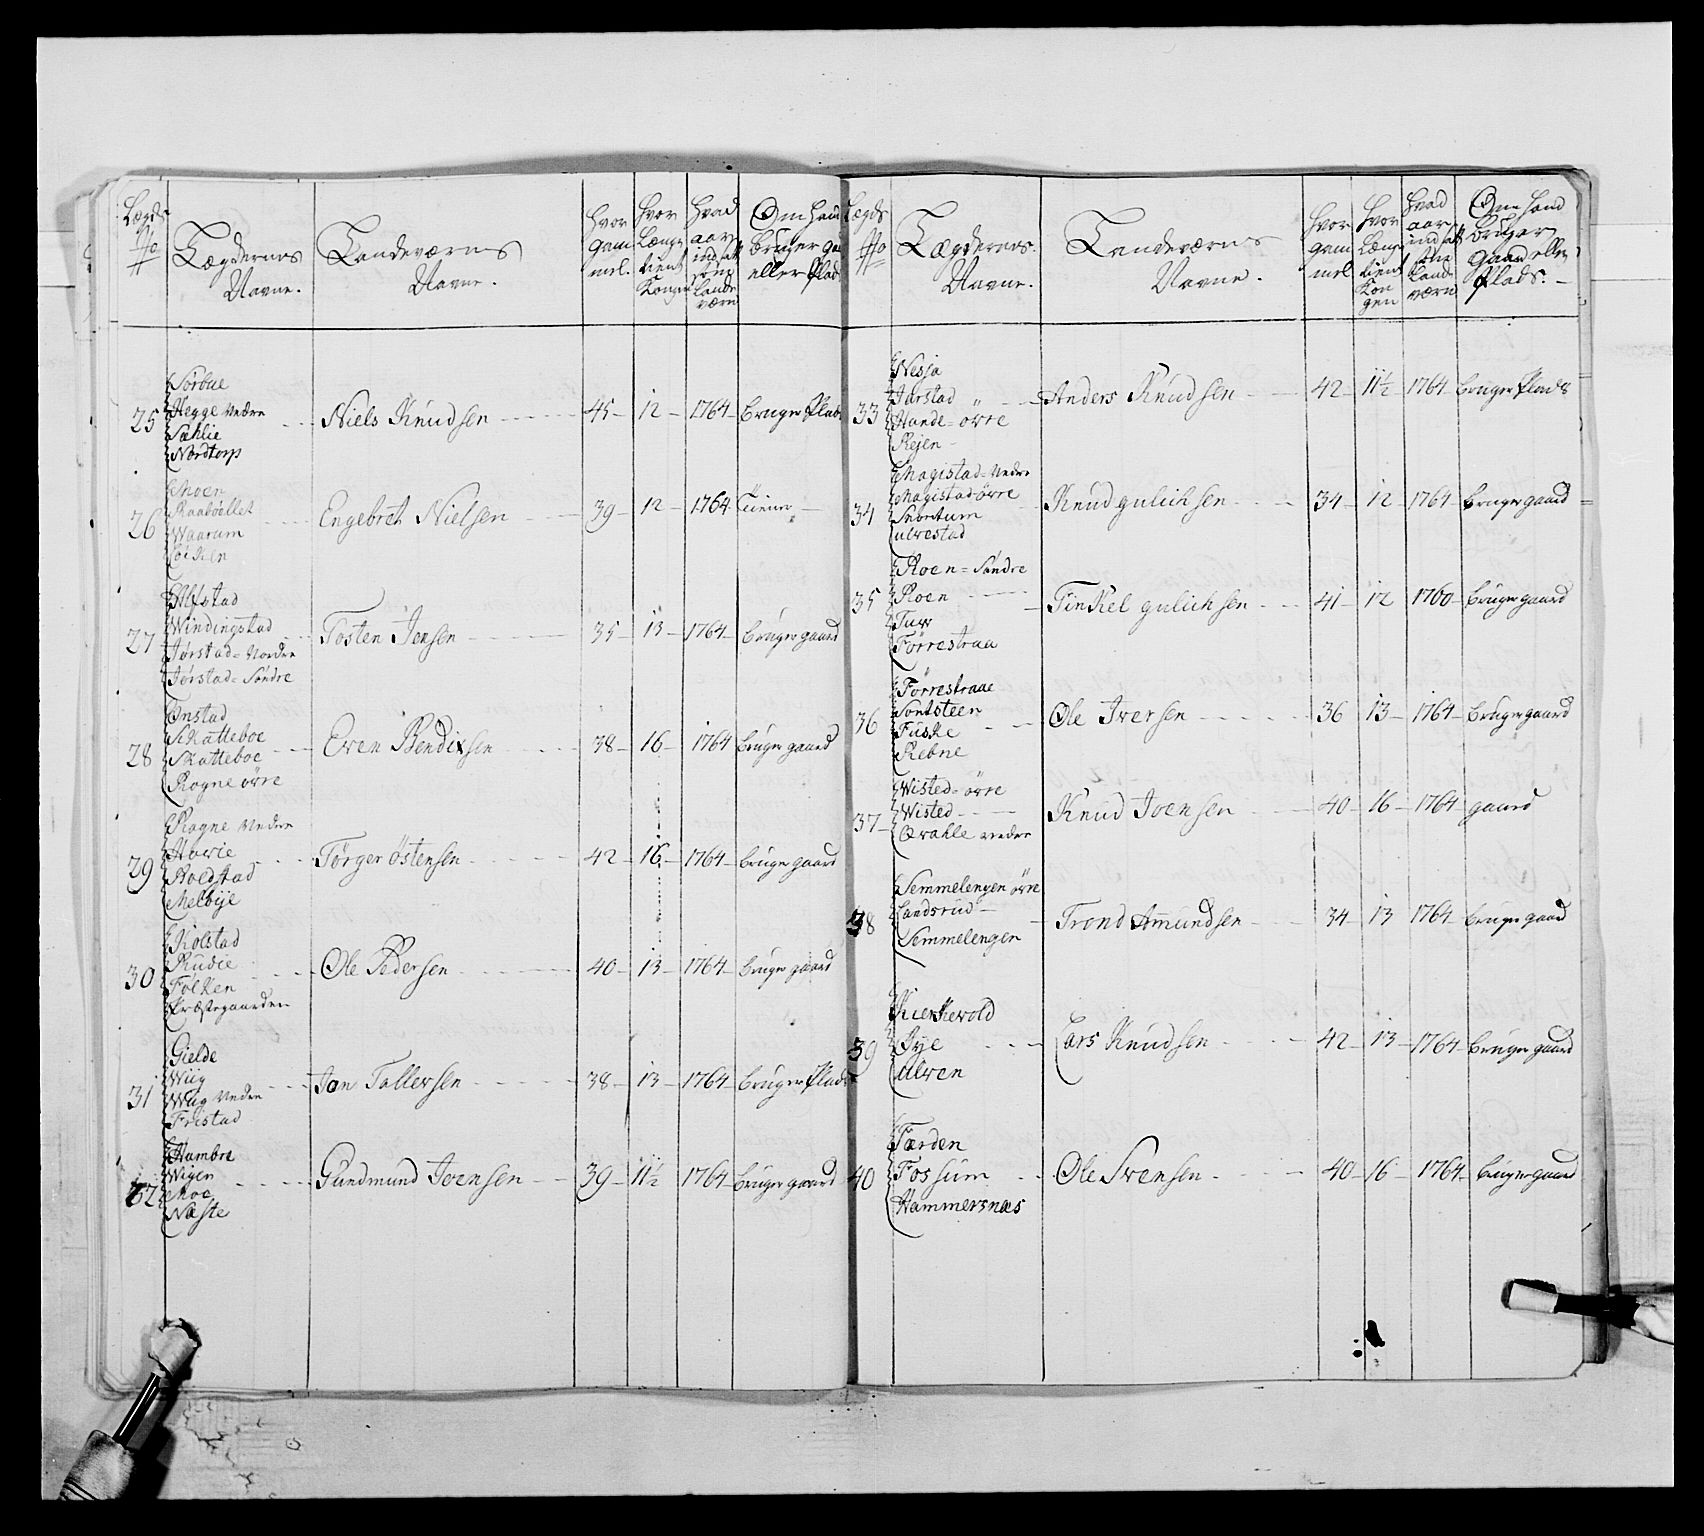 Lægds No
Lægdernes Navne.
Landeværns Navne.
Hvor gam mel.
Hvor Længe tient Kongen
Hvad aar indsatt som Lande værn
Om hand bruger gaa eller Plads
25
Sørbue
Hegge Nedre
Sæhlie
Nordtorp
Niels Knudsen 45 12 1764 bruger Plads
26
Moen
Raabøellet
Waarum
Løcken
Engebret Nielsen 39 12 1764
27
Alfstad
Windingstad
Jørstad Nordre
Jørstad Søndre
Tosten Jensen 35 13 1764 bruger gaard
28
Onstad
Skatteboe
Skatteboe
Rogne øvre
Even Bendixsen 38 16 1764 bruger gaard
29
Rogne Nedre
Harie
Roedstad
Melbye
Tørger Østensen 42 16 1764 bruger gaard
30
Kolstad
Rudie
Følken
Præstegaarden
Ole Pedersen 40 13 1764 bruger gaard
31
Gielde
Wiig
Wiig Nedre
Fristad
Jon Tollevsen 38 13 1764 bruger Plads
32
Hambre
Wigen
Moe
Næste
Gundmund Joensen 39 11½ 1764 bruger gaard
Lægds No
Lægdernes Navne.
Landeværns Navne.
Hvor gam mel
Hvor Længe tient Kon gen
Hvad aar indsatt som Lande værn
Om Hand bruger Gaard eller Plads.
33
Nesja
Jarstad
Hande øvre
Rejen
Anders Knudsen 42 11½ 1764 bruger Plads
34
Magistad Nedre
Magistad øvre
Sebutum
Ulvestad
Knud gulichsen 34 12 1764 bruger gaard
35
Roen Søndre
Roen
Tuv
Førrestraa
Tinkel gulichsen 41 12 1760 bruger gaard
36
Førrestraae
Sontsteen
Fuske
Rebne
Ole Iversen 36 13 1764 bruger gaard
37
Wisted øvre
Wisted
Qvahle nedre
Knud Joensen 40 16 1764 gaard
38
Semmelengen øvre
Landsrud
Semmelengen
Trond Amundsen 34 13 1764 bruger gaard
39
Kierkevold
Jye
Ulven
Lars Knudsen 42 13 1764 bruger gaard
40
Færden
Fossum
Hammersnæs
Ole Svensen 40 16 1764 bruger gaard